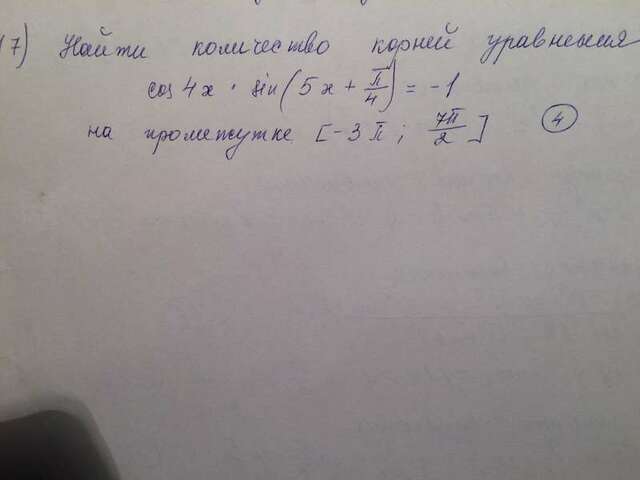 17) Найти количество корней уравнения
cos 4x · sin(5x + π/4) = -1
на промежутке [-3π; 7π/2] (4)